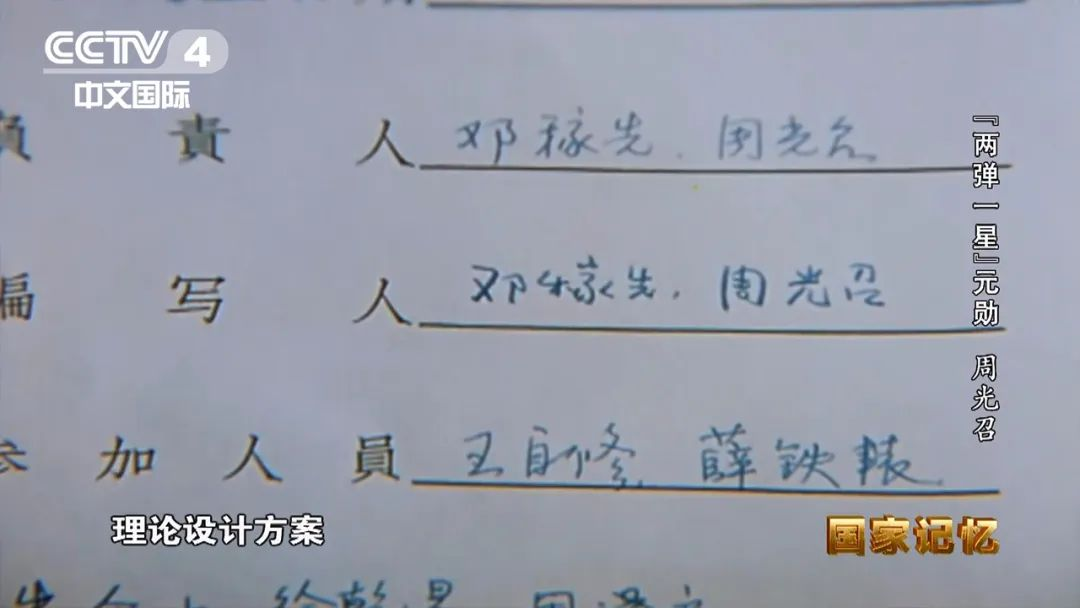 CCTV 4
中文国际
負責人 邓稼先、周光召
编写人 邓稼先、周光召
参加人員 王自修 薛铁辕
『两弹一星』元勋 周光召
理论设计方案
国家记忆
徐乾